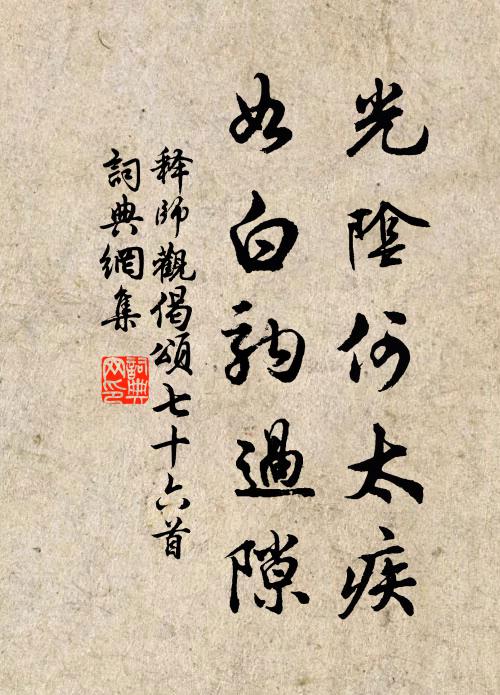 光陰何太疾
如白駒過隙
释師觀偈頌七十六首
詞典網集
詞典
网印